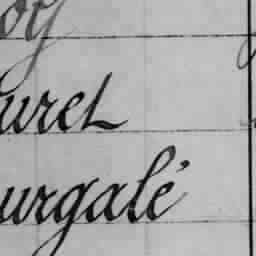 og
uret
urgalé